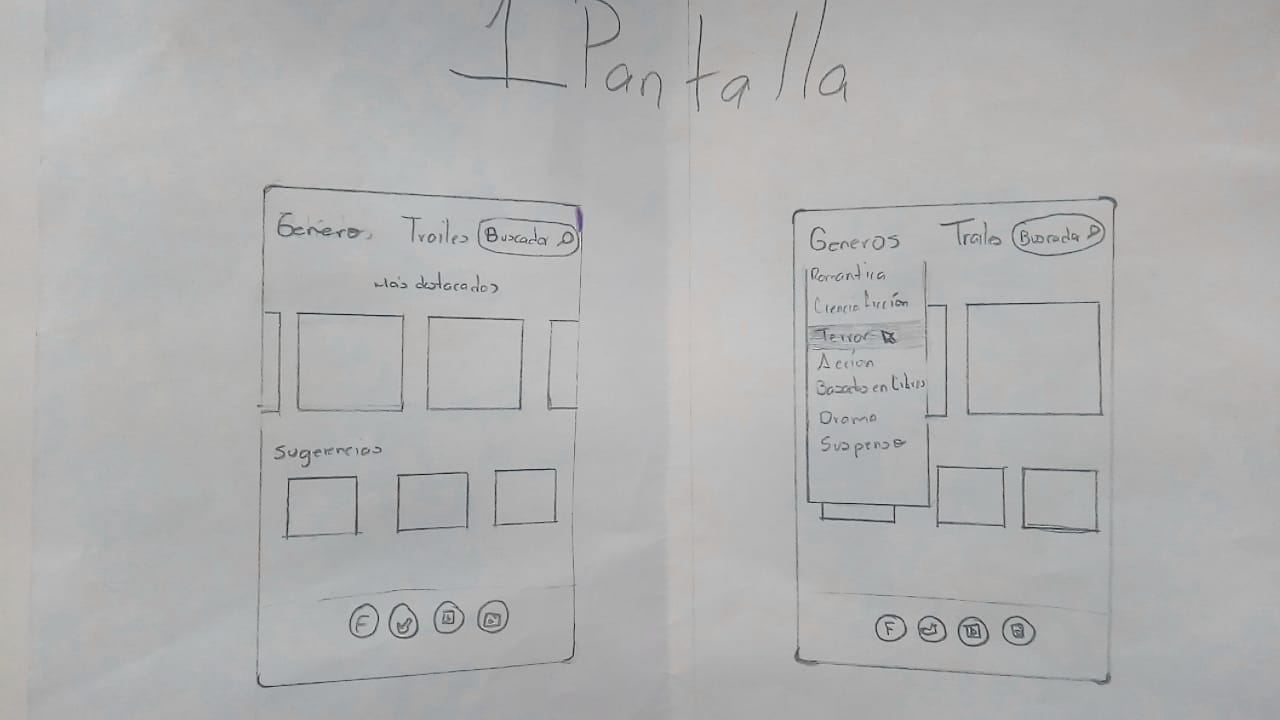 1 Pantalla
Géneros Trailes Buscador
Más destacados
Sugerencias
F
Generos Trailes Buscador
Romantica
Ciencia ficción
Terror
Acción
Basados en Libros
Drama
Suspenso
F